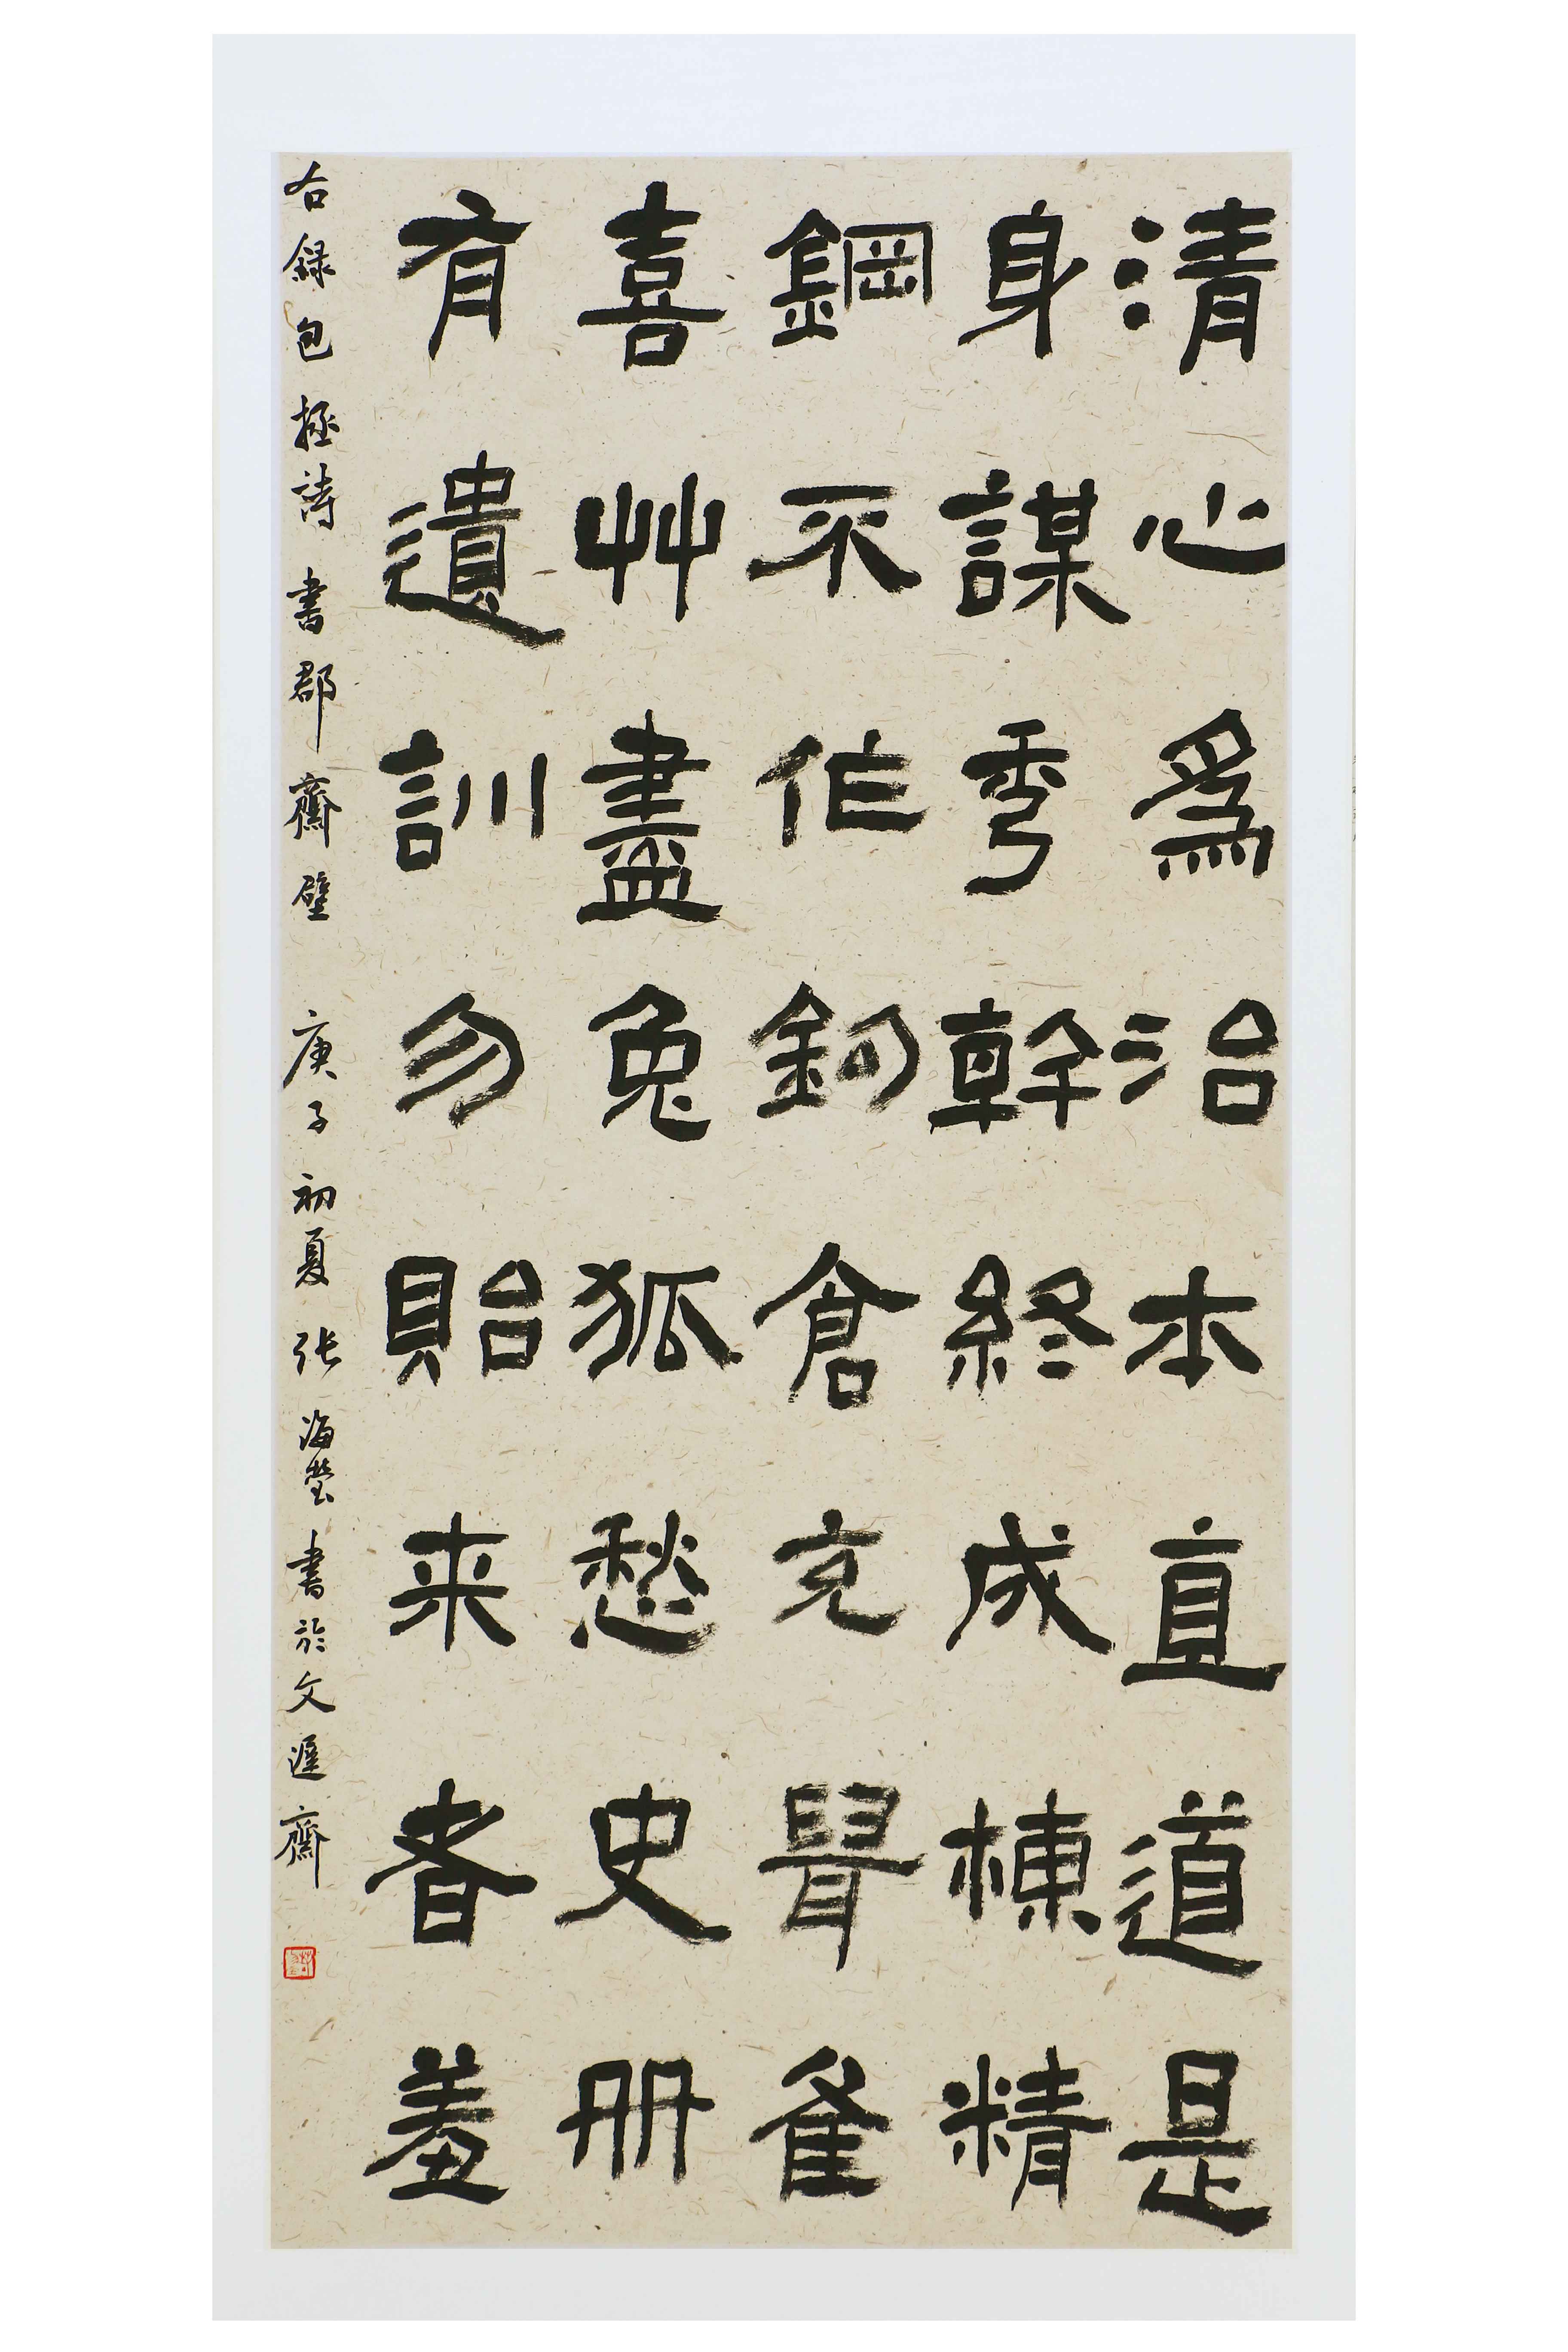 清心爲治本直道是
身謀秀幹終成棟精
鋼不作鉤倉充鼠雀
喜艸盡兔狐愁史冊
有遺訓勿貽来者羞
右録包拯詩書郡齋壁 庚子初夏張海瑩書於文遲齋